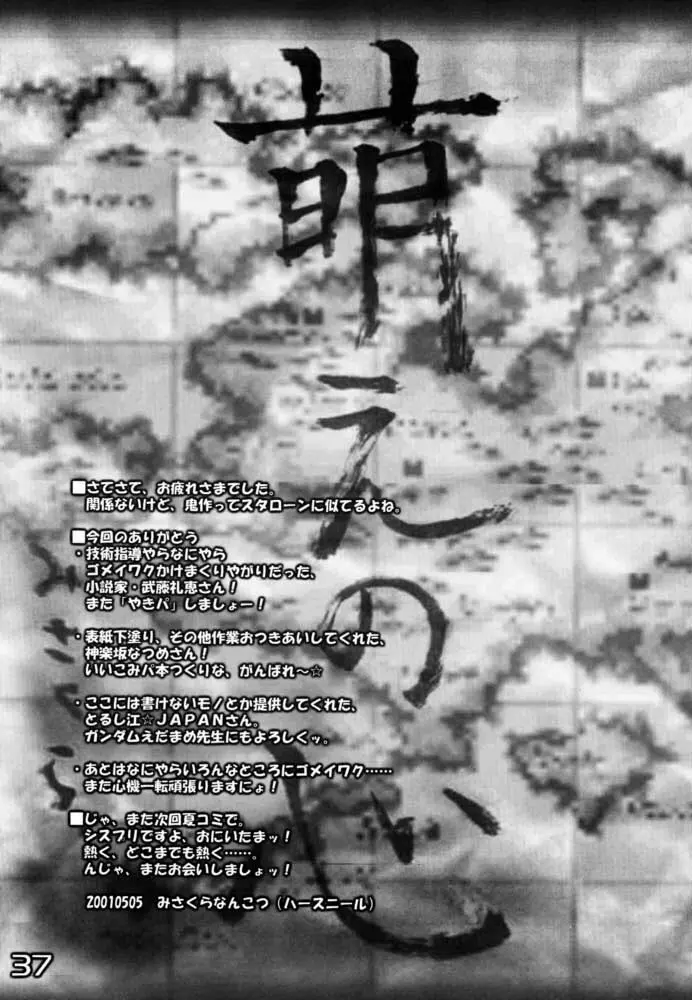 萌えの心
■さてさて、お疲れさまでした。
関係ないけど、鬼作ってスタローンに似てるよね。
■今回のありがとう
・技術指導やらなにやら
ゴメイワクかけまくりやがりだった、
小説家・武藤礼恵さん！
また「やきパ」しましょー！
・表紙下塗り、その他作業おつきあいしてくれた、
神楽坂なつめさん！
いいこみパ本つくりな、がんばれ～☆
・ここには書けないモノとか提供してくれた、
とるし江☆ＪＡＰＡＮさん。
ガンダムえだまめ先生にもよろしくッ。
・あとはなにやらいろんなところにゴメイワク……
また心機一転頑張りますにょ！
■じゃ、また次回夏コミで。
シスプリですよ、おにいたまッ！
熱く、どこまでも熱く……。
んじゃ、またお会いしましょッ！
20010505　みさくらなんこつ（ハースニール）
37